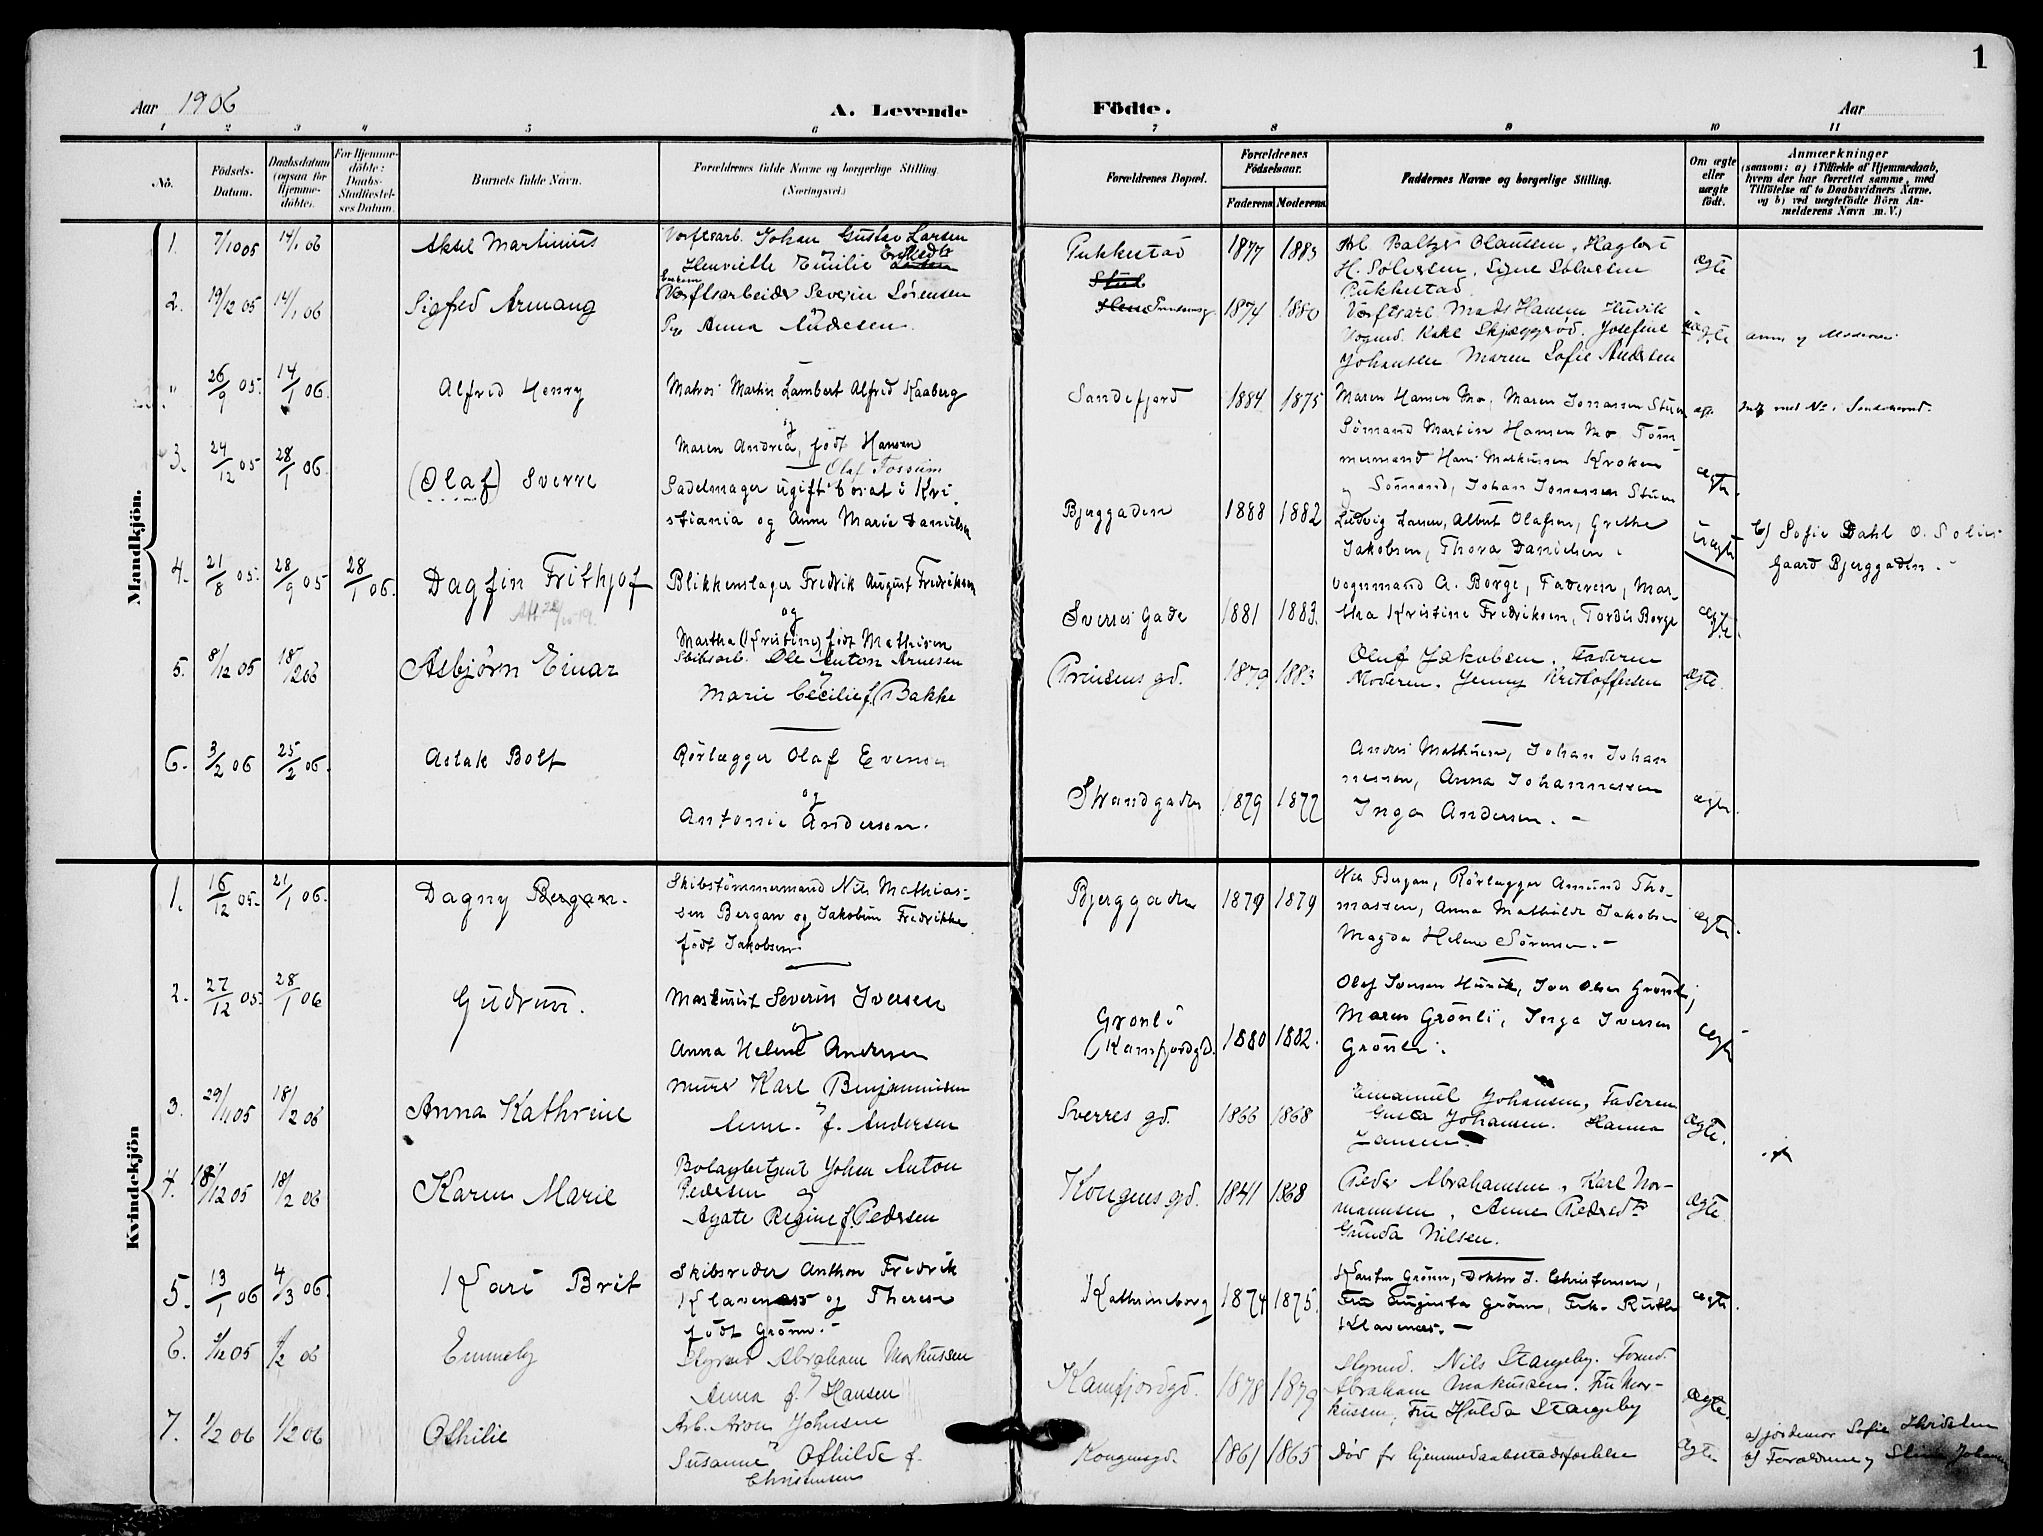 1
Aar 1906
A. Levende
Födte.
Aar
1 2 3 4 5 6 7 8 9 10 11
No.
Födsels-
Datum.
Daabsdatum
(ogsaa for
Hjemme-
döbte).
For Hjemme-
döbte:
Daabs-
Stadfæstel-
ses Datum.
Barnets fulde Navn.
Forældrenes fulde Navne og borgerlige Stilling.
(Næringsvei.)
Forældrenes Bopæl.
Forældrenes
Födselsaar.
Faderens
Moderens
Faddernes Navne og borgerlige Stilling.
Om ægte
eller
uægte
född.
Anmærkninger
(saasom: a) i Tilfælde af Hjemmedaab,
hvem der har forrettet samme, med
Tilföielse af to Daabsvidners Navne.
og b) ved uægtefödte Börn An-
melderens Navn m. V.)
Mandkjön.
1. 7/10 05 14/1 06
Aksel Martinius
Verftsarb. Johan Gustav Larsen
Henriette Emilie
Pukkestad
1877 1883
Arb. Baltzer Olaussen, Hagbart
H. Sølversen, Signe Sølversen
Pukkestad
ægte
2. 19/12 05 14/1 06
Sigfred Armang
Verftsarbeider Severin Sørensen
Pige Anna Andresen
1874 1880
Verftsarb. Mads Hansen Huvik
Vognmd. Karl Skjæggerød, Josefine
Johansen Maren Sofie Andersen
uægte
anm. af Moderen
" 26/9 05. 14/1 06.
Alfred Henry
Matros Martin Lambert Alfred Kaaberg
og
Maren Andrea, født Hansen
Sandefjord
1884 1875
Maren Hansen Mo, Maren Jonassen Stuen
Sömand Martin Hansen Mo Töm-
mermand Hans Markussen Kroken
Sömand, Johan Jonassen Stuen
ægte
3. 24/12 05 28/1 06.
(Olaf) Sverre
Olaf Fossum
Sadelmager ugift bosat i Kri-
stiania og Anne Marie Danielsen
Bjerggaden
1888 1882
Ludvig Larsen, Albert Olafsen, Grethe
Jakobsen, Thora Danielsen.
uægte
b) Sofie Dahl
Gaard Bjerggaden.
4. 21/8 05. 28/9 05 28/1 06.
Dagfin Frithjof
Blikkenslager Fredrik August Fredriksen
og
Martha (Kristine) født Mathisen
Sverres Gade
1881 1883.
Vognmand A. Borge, Faderen, Mar-
tha Kristine Fredriksen, Tordis Borge
ægte.
5. 8/12 05 18/2 06
Asbjørn Einar
Skibsarb. Ole Anton Arnesen
Marie Cecilie f. Bakke
Prinsens gd.
1879 1883
Oluf Jakobsen, Faderen
Moderen, Jenny Kristoffersen
ægte.
6. 3/2 06 25/2 06.
Aslak Bolt
Rörlægger Olaf Evensen
og
Antonie Andersen.
Strandgaden
1879 1877
Anders Mathisen, Johan Johan
nessen, Anna Johannessen
Inga Andersen. -
ægte.
Kvindekjön
1. 16/12 05. 21/1 06.
Dagny Bergan.
Skibstömmermand Nils Mathias-
sen Bergan og Jakobine Fredrikke
født Jakobsen.
Bjerggaden
1879 1879
Nils Bergan, Rörlægger Amund Tho-
massen, Anna Mathilde Jakobsen
Magda Helene Sörensen. -
ægte.
2. 27/12 05. 28/1 06
Gudrun.
Maskinist Severin Iversen
og
Anna Helene Andersen
Grönli
Kamfjordgd.
1880 1882.
Olaf Iversen Huvik, Iver Olsen Grønli,
Maren Grönli, Inga Iversen
Grönli.
ægte
3. 29/11 05 18/2 06
Anna Kathrine
Murer Karl Benjaminsen
Anne. f. Andersen
Sverres gd.
1866 1868
Emanuel Johansen, Faderen
Gusta Johansen. Hanna
Jansen
ægte.
4. 18/12 05 18/2 06
Karen Marie
Bolagbetjent Johan Anton
Pedersen og
Agate Regine f. Pedersen
Kongens gd.
1841 1868
Peder Abrahamsen, Karl Nor-
mannsen, Anne Pedersdtr
Gunda Nilsen.
ægte
5. 13/1 06 4/3 06.
Kari Brit
Skibsreder Anthon Fredrik
Klaveness og Therese
født Grönn. -
Kathrineborg
1874 1875.
Karsten Grönn, Doktor J. Christensen,
Fru Augusta Grönn, Frk. Ruth
Klaveness. -
ægte.
6. 5/12 05 4/2 06
Emmely
Styrmd Abraham Markussen
Anna f. Hansen
Kamfjordgd.
1878 1879
Styrmd. Nils Stangeby. Tømd.
Abraham Makussen. Fru Mar-
kussen, Fru Hulda Stangeby
ægte.
7. 1/2 06 1/2 06
Othilie
Arb. Aron Johnsen
Susanne Othilde f.
Christensen
Kongensgd.
1861 1865
Død før hjemmedaabsstadfæstelse
ægte.
a) jordemor Sofie
b) Forældrene og